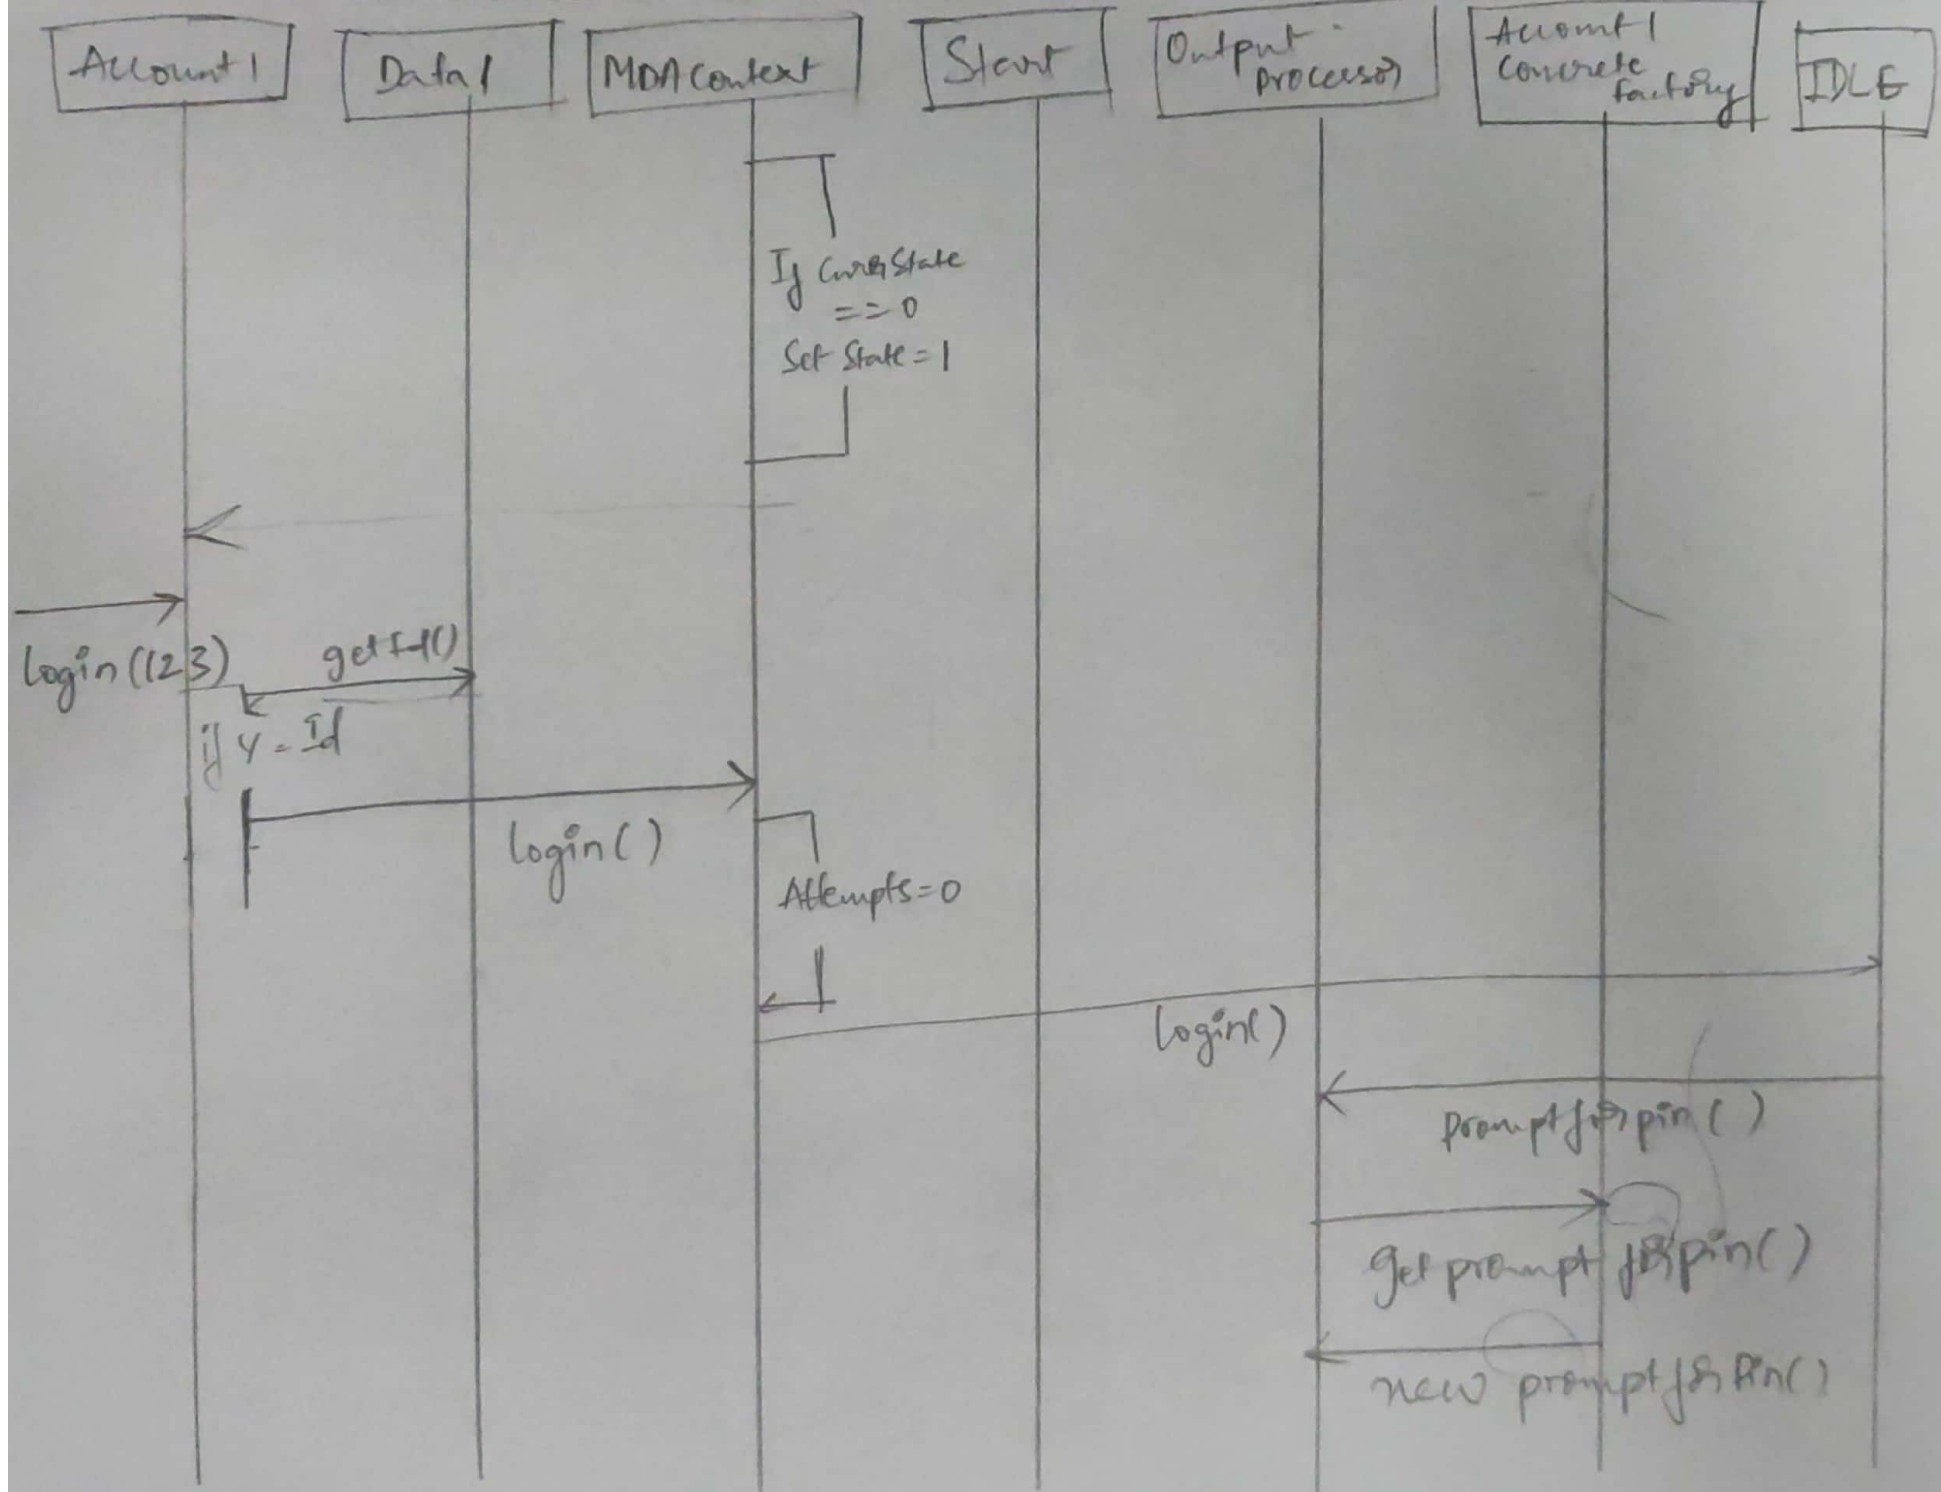 Account 1
Data 1
MDAContext
Start
Output
processor
Account 1
Concrete
factory
IDLE
If CurrState
==0
Set State=1
login(123)
getId()
if y=Id
login()
Attempts=0
login()
promptforpin()
get prompt for pin()
new prompt for Pin()